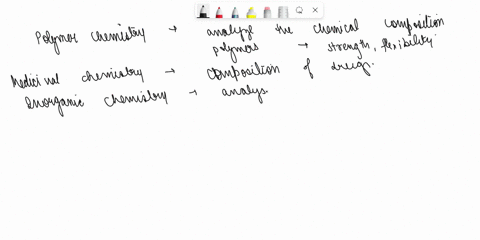 Polymer chemistry → analyze the chemical composition
polymers → strength, flexibility
Medicinal chemistry → composition of drugs.
Inorganic chemistry → analys